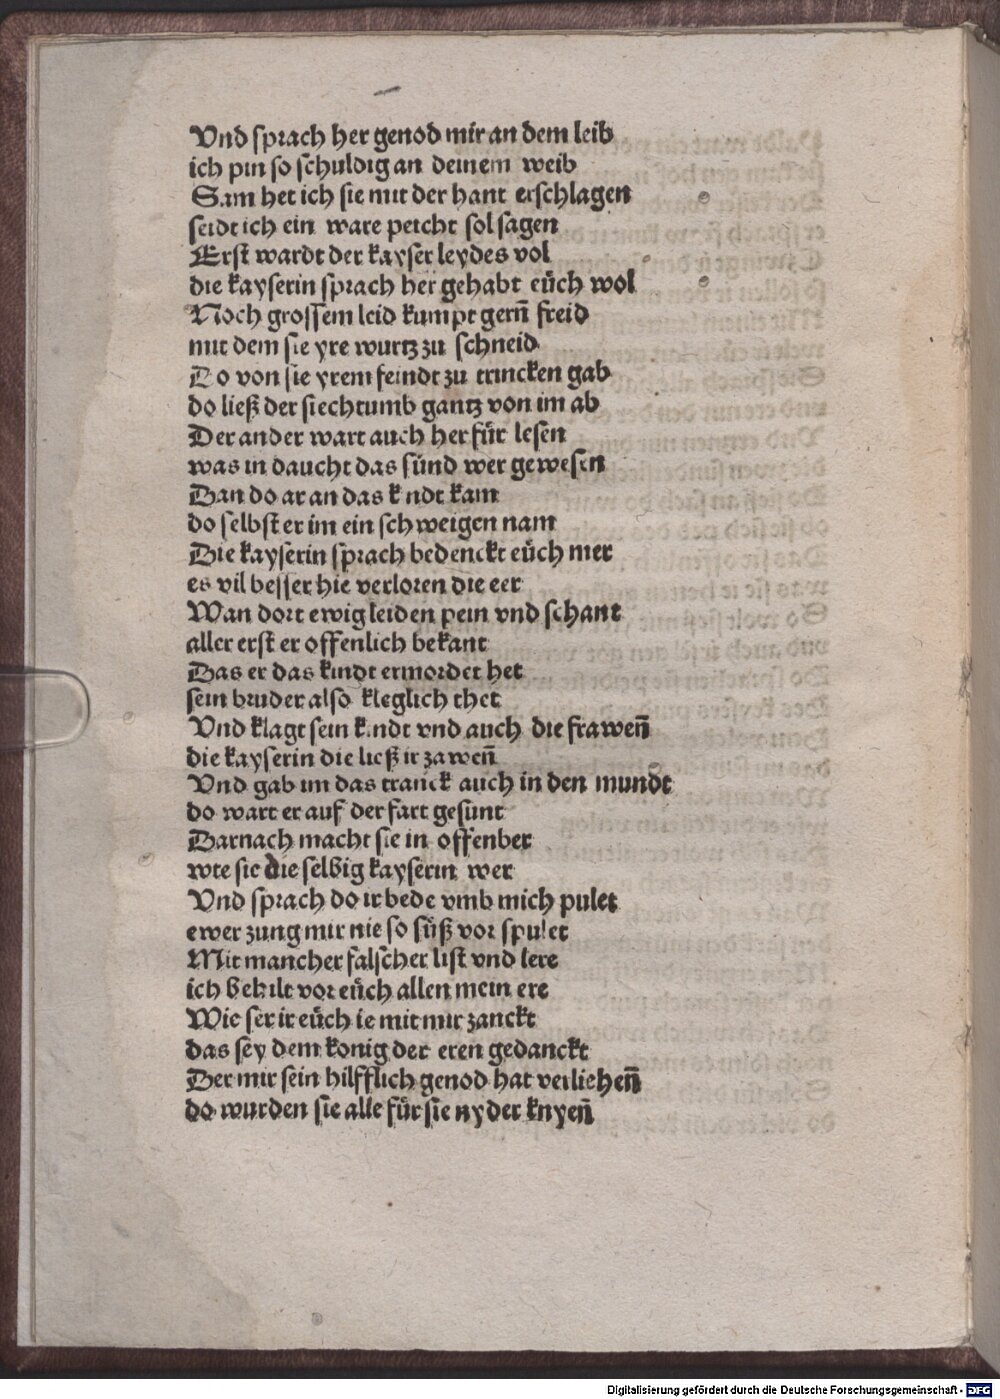 Vnd sprach her genod mir an dem leib
ich pin so schuldig an deinem weib
Sam het ich sie mit der hant erschlagen
seidt ich ein ware peicht sol sagen
Erst wardt der kayser leydes vol
die kayserin sprach her gehabt eüch wol
Noch grossem leid kumpt gern̄ freid
mit dem sie yre wurtz zu schneid
Do von sie yrem feindt zu trincken gab
do ließ der siechtumb gantz von im ab
Der ander wart auch her für lesen
was in daucht das sünd wer gewesen
Dan do ar an das kindt kam
do selbst er im ein schweigen nam
Die kayserin sprach bedenckt eüch mer
es vil besser hie verloren die eer
Wan dort ewig leiden pein vnd schant
aller erst er offenlich bekant
Das er das kindt ermordet het
sein bruder also kleglich thet
Vnd klagt sein kindt vnd auch die frawen̄
die kayserin die ließ ir zawen̄
Vnd gab im das tranck auch in den mundt
do wart er auf der fart gesunt
Darnach macht sie in offenber
wie sie die selbig kayserin wer
Vnd sprach do ir bede vmb mich pulet
ewer zung mir nie so süß vor spulet
Mit mancher falscher list vnd lere
ich behilt vor eüch allen mein ere
Wie ser ir eüch ie mit mir zanckt
das sey dem konig der eren gedanckt
Der mir sein hilfflich genod hat verliehen̄
do wurden sie alle für sie nyder knyen̄
Digitalisierung gefördert durch die Deutsche Forschungsgemeinschaft - DFG